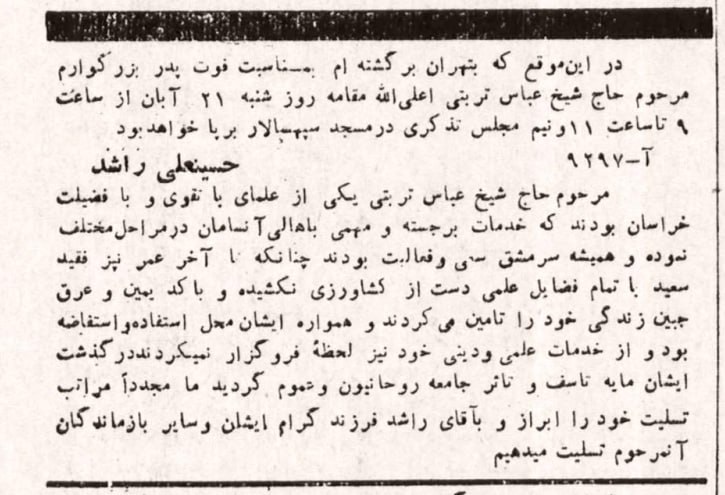 در این‌موقع که بتهران برگشته ام بمناسبت فوت پدر بزرگوارم
مرحوم حاج شیخ عباس تربتی اعلی‌الله مقامه روز شنبه ۲۱ آبان از ساعت
۹ تاساعت ۱۱ونیم مجلس تذکری درمسجد سپهسالار برپا خواهدبود
آ-۹۲۹۷ حسینعلی راشد
مرحوم حاج شیخ عباس تربتی یکی از علمای با تقوی و با فضیلت
خراسان بودند که خدمات برجسته و مهمی باهالی‌آنسامان درمراحل‌مختلف
نموده و همیشه سرمشق سعی وفعالیت بودند چنانکه تا آخر عمر نیز فقید
سعید با تمام فضایل علمی دست از کشاورزی نکشیده و باکد یمین و عرق
جبین زندگی خود را تامین می‌کردند و همواره ایشان‌محل استفاده‌واستفاضه
بود و از خدمات علمی ودینی خود نیز لحظهٔ فروگزار نمیکردنددرگذشت
ایشان مایه تاسف و تاثر جامعه روحانیون وعموم گردید ما مجدداً مراتب
تسلیت خود را ابراز و بآقای راشد فرزند گرام ایشان وسایر بازماندگان
آنمرحوم تسلیت میدهیم